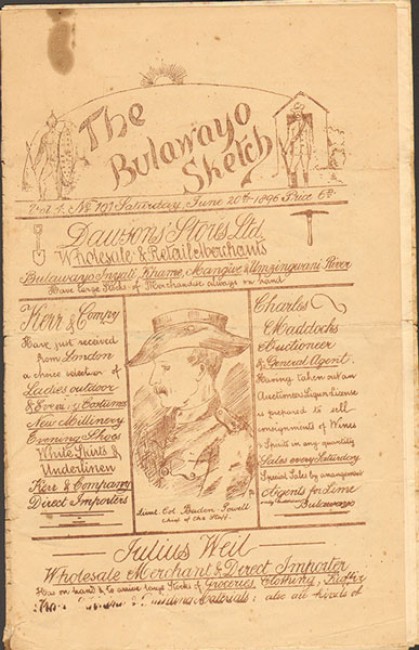 The
Bulawayo
Sketch
Saturday, June 20th 1896 Price 6d
Dawsons' Stores Ltd.
Wholesale & Retail Merchants
Bulawayo, Inyati, Khame, Mangwe & Umzingwani River
Have large Stocks of Merchandise always on hand
Kerr & Compy
Have just received
from London
a choice selection of
Ladies outdoor
& Evening Costumes
New Millinery
Evening Shoes
White Skirts &
Underlinen
Kerr & Company
Direct Importers
Lieut. Col. Baden-Powell
Chief of the Staff.
Charles
Maddocks
Auctioneer
& General Agent.
Having taken out an
Auctioneers Liquor License
is prepared to sell
consignments of Wines
& Spirits in any quantity
Sales every Saturday
Special Sales by arrangement
Agents for Lime
Bulawayo
Julius Weil
Wholesale Merchant & Direct Importer
Has on hand & to arrive large Stocks of Groceries, Clothing,
Building Materials: also all kinds of